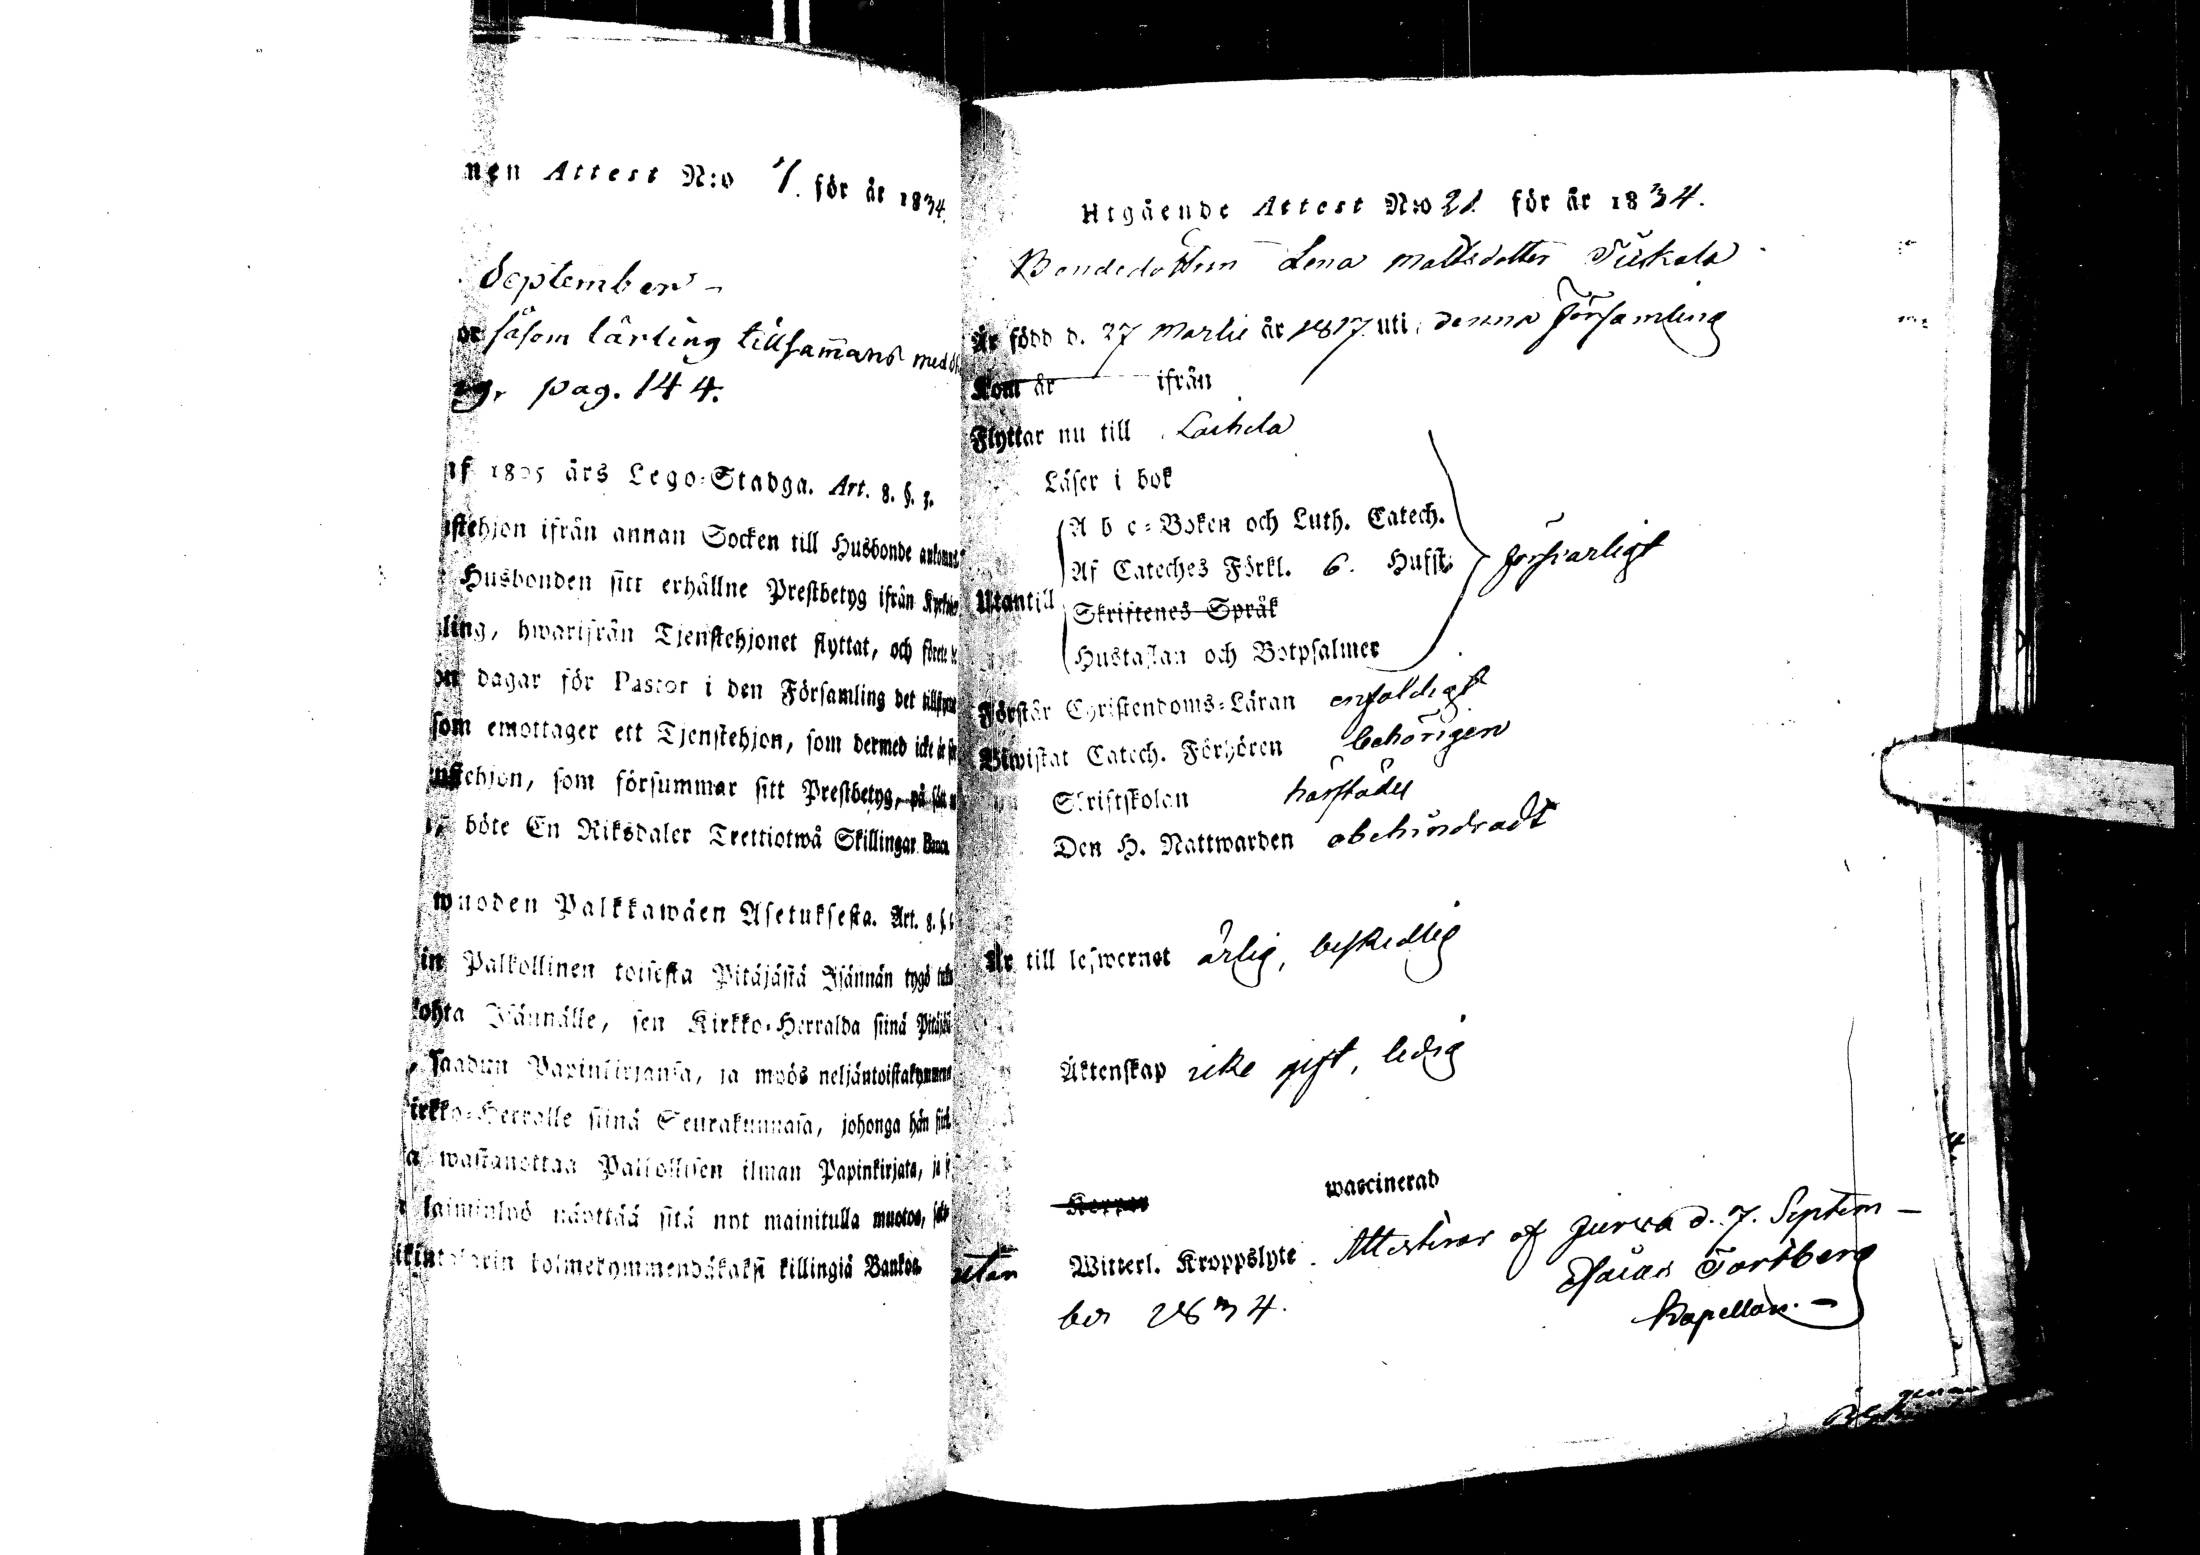 nen Attest N:o 7. för år 1834.
September
såsom lärling tillsamans med
pag. 144.
af 1805 års Lego-Stadga. Art. 8. §. 3.
stehjon ifrån annan Socken till Husbonde ankommit
Husbonden sitt erhållne Prestbetyg ifrån
ling, hwarifrån Tjenstehjonet flyttat, och förete
dagar för Pastor i den Församling det
som emottager ett Tjenstehjon, som dermed icke är
nstehjon, som försummar sitt Prestbetyg, på
böte En Riksdaler Trettiotwå Skillingar Banco
wuoden Palkkawäen Asetuksesta. Art. 8. §.
in Palkollinen toisesta Pitäjästä Isännän tygö
kohta Isännälle, sen Kirkko-Herralda siinä
saadun Papinkirjansa, ja myös neljäntoistakymmenen
irkko-Herralle siinä Seurakunnasa, johonga hän
wastanottaa Palkollisen ilman Papinkirjata, ja
laiminlyö näyttää sitä nyt mainitulla muotoa,
kolmekymmendäkaksi killingiä Bankos
Utgående Attest N:o 21. för år 1834.
Bondedottren Lena Mattsdotter Tiiskala
Är född d. 27 Martii år 1817. uti denna Församling
Kom år ifrån
Flyttar nu till Laihela
Läser i bok
Utantill
A b c-Boken och Luth. Catech.
Af Cateches Förkl. 6. Hufst:
Skriftenes Språk
Hustaflan och Botpsalmer
försvarligt
Förstår Christendoms-Läran enfaldigt
Biwistat Catech. Förhören behörigen
Skriftskolan härstädes
Den H. Nattwarden obehindradt
Är till lefwernet ärlig, beskedlig
Äktenskap icke gift, ledig
Koppor waccinerad
utan Witterl. Kroppslyte. Attesterar af Jurva d. 7. Septem-
ber 1834.
Esaias Fortberg
Kapellan.